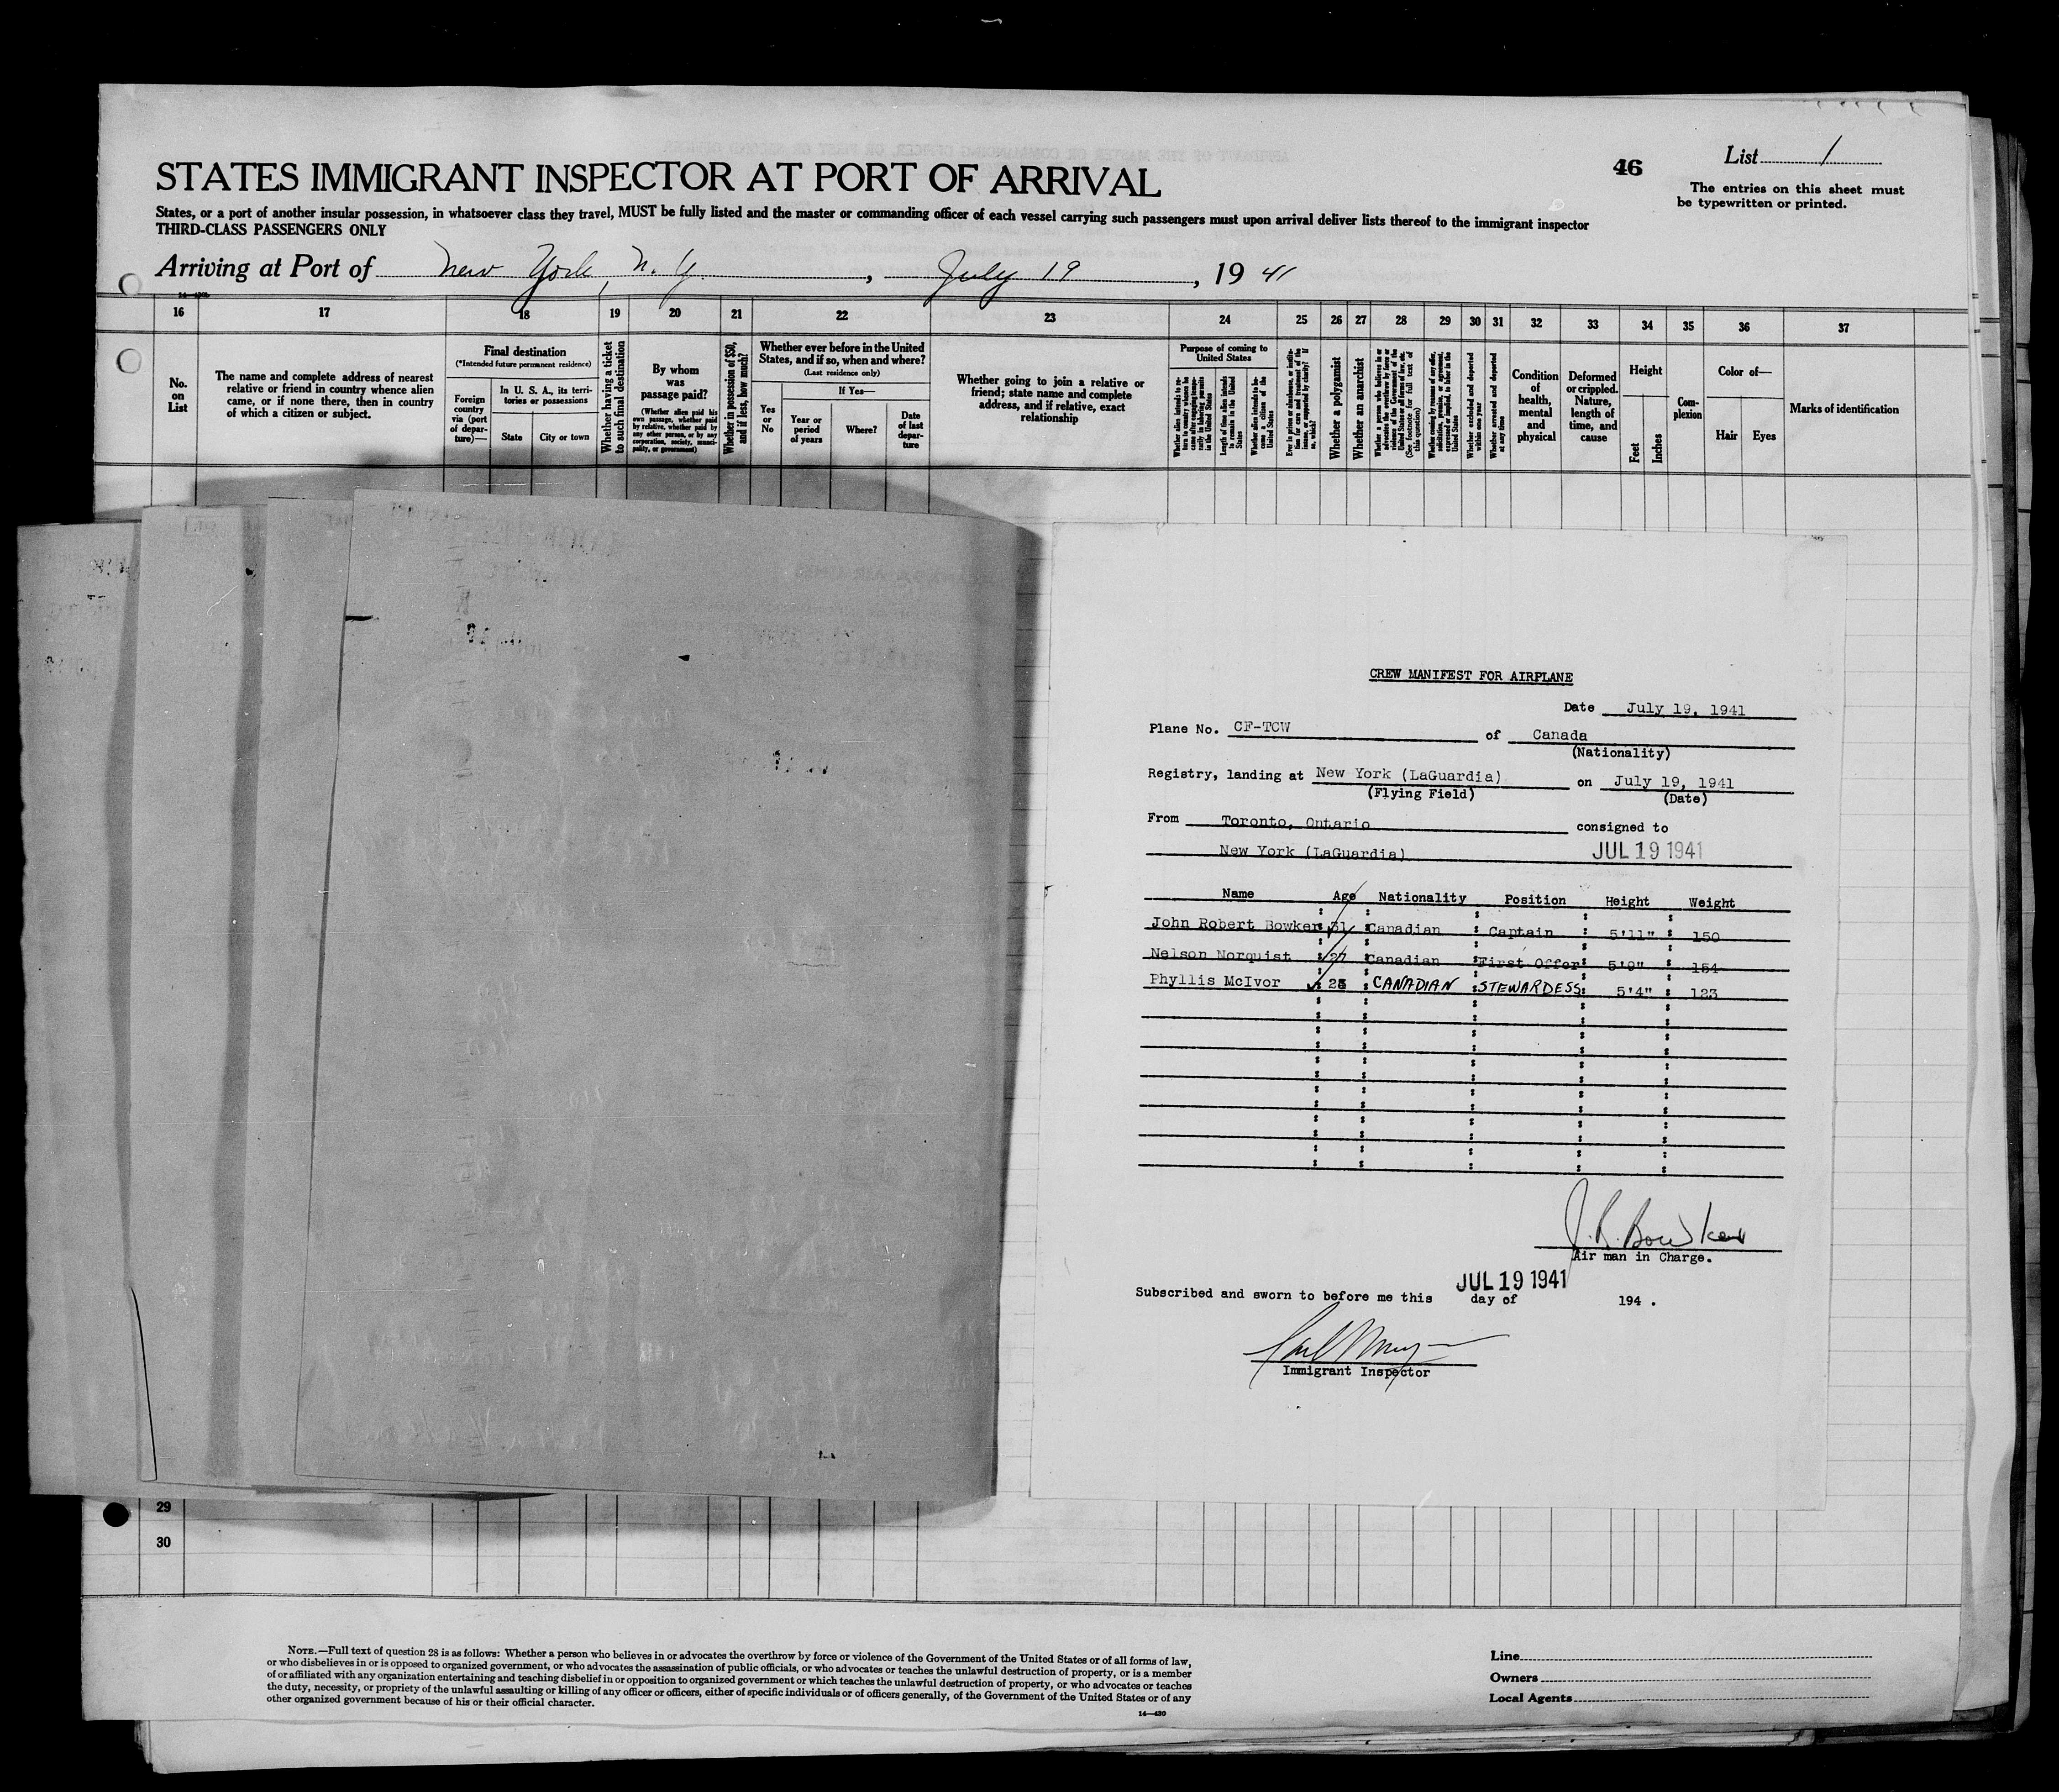 STATES IMMIGRANT INSPECTOR AT PORT OF ARRIVAL
46
List 1
The entries on this sheet must
be typewritten or printed.
States, or a port of another insular possession, in whatsoever class they travel, MUST be fully listed and the master or commanding officer of each vessel carrying such passengers must upon arrival deliver lists thereof to the immigrant inspector
THIRD-CLASS PASSENGERS ONLY
Arriving at Port of New York, N. Y., July 19, 1941
16 17 18 19 20 21 22 23 24 25 26 27 28 29 30 31 32 33 34 35 36 37
No.
on
List
The name and complete address of nearest
relative or friend in country whence alien
came, or if none there, then in country
of which a citizen or subject.
Final destination
(*Intended future permanent residence)
Foreign
country
via (port
of depar-
ture)—
In U. S. A., its terri-
tories or possessions
State
City or town
Whether having a ticket
to such final destination
By whom
was
passage paid?
(Whether alien paid his
own passage, whether paid
by relative, whether paid by
any other person, or by any
corporation, society, munici-
pality, or government)
Whether in possession of $50,
and if less, how much?
Whether ever before in the United
States, and if so, when and where?
(Last residence only)
Yes
or
No
If Yes—
Year or
period
of years
Where?
Date
of last
depar-
ture
Whether going to join a relative or
friend; state name and complete
address, and if relative, exact
relationship
Purpose of coming to
United States
Whether alien intends to re-
turn to country whence he
came after engaging tempo-
rarily in laboring pursuits
in the United States
Length of time alien intends
to remain in the United
States
Whether alien intends to be-
come a citizen of the
United States
Whether a polygamist
Whether an anarchist
Whether excluded and deported
within one year
Whether arrested and deported
at any time
Condition
of
health,
mental
and
physical
Deformed
or crippled.
Nature,
length of
time, and
cause
Height
Feet
Inches
Com-
plexion
Color of—
Hair
Eyes
Marks of identification
CREW MANIFEST FOR AIRPLANE
Date July 19, 1941
Plane No. CF-TCW of Canada
(Nationality)
Registry, landing at New York (LaGuardia) on July 19, 1941
(Flying Field) (Date)
From Toronto, Ontario consigned to
New York (LaGuardia) JUL 19 1941
Name Age Nationality Position Height Weight
John Robert Bowker 31 Canadian Captain 5'11" 150
Nelson Norquist 27 Canadian First Offer 5'9" 154
Phyllis McIvor CANADIAN STEWARDESS 5'4" 123
J. R. Bowker
Air man in Charge.
JUL 19 1941
Subscribed and sworn to before me this day of 194 .
Immigrant Inspector
29
30
NOTE.—Full text of question 28 is as follows: Whether a person who believes in or advocates the overthrow by force or violence of the Government of the United States or of all forms of law,
or who disbelieves in or is opposed to organized government, or who advocates the assassination of public officials, or who advocates or teaches the unlawful destruction of property, or is a member
of or affiliated with any organization entertaining and teaching disbelief in or opposition to organized government or which teaches the unlawful destruction of property, or who advocates or teaches
the duty, necessity, or propriety of the unlawful assaulting or killing of any officer or officers, either of specific individuals or of officers generally, of the Government of the United States or of any
other organized government because of his or their official character.
14—430
Line
Owners
Local Agents